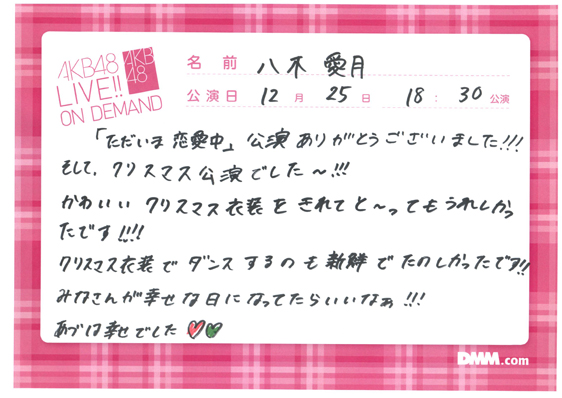 AKB48
LIVE!!
ON DEMAND
AKB
48
名前 八木 愛月
公演日 12月 25日 18:30公演
「ただいま 恋愛中」公演ありがとうございました!!!
そして、クリスマス公演でした〜!!!
かわいい クリスマス衣装を きれてと〜ってもうれしかっ
たです!!!
クリスマス衣装で ダンス するのも 新鮮で たのしかったです!!
みなさんが幸せな日になってたらいいなぁ!!!
あづは幸せでした
DMM.com